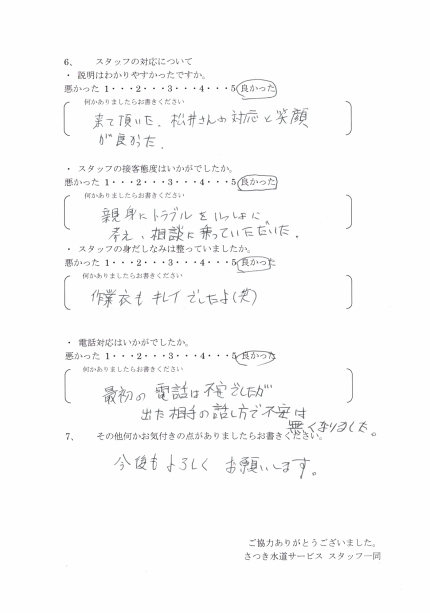 6、　　スタッフの対応について
・ 説明はわかりやすかったですか。
悪かった 1・・・2・・・3・・・4・・・5 良かった
何かありましたらお書きください
来て頂いた、松井さんの対応と笑顔
が良かった.
・ スタッフの接客態度はいかがでしたか。
悪かった 1・・・2・・・3・・・4・・・5 良かった
何かありましたらお書きください
親身にトラブルをいっしょに
考え、相談に乗っていただいた。
・ スタッフの身だしなみは整っていましたか。
悪かった 1・・・2・・・3・・・4・・・5 良かった
何かありましたらお書きください
作業衣もキレイでしたよ(笑)
・ 電話対応はいかがでしたか。
悪かった 1・・・2・・・3・・・4・・・5 良かった
何かありましたらお書きください
最初の電話は不安でしたが
出た相手の話し方で不安は
無くなりました。
7、　　その他何かお気付きの点がありましたらお書きください。
今後もよろしくお願いします。
ご協力ありがとうございました。
さつき水道サービス スタッフ一同